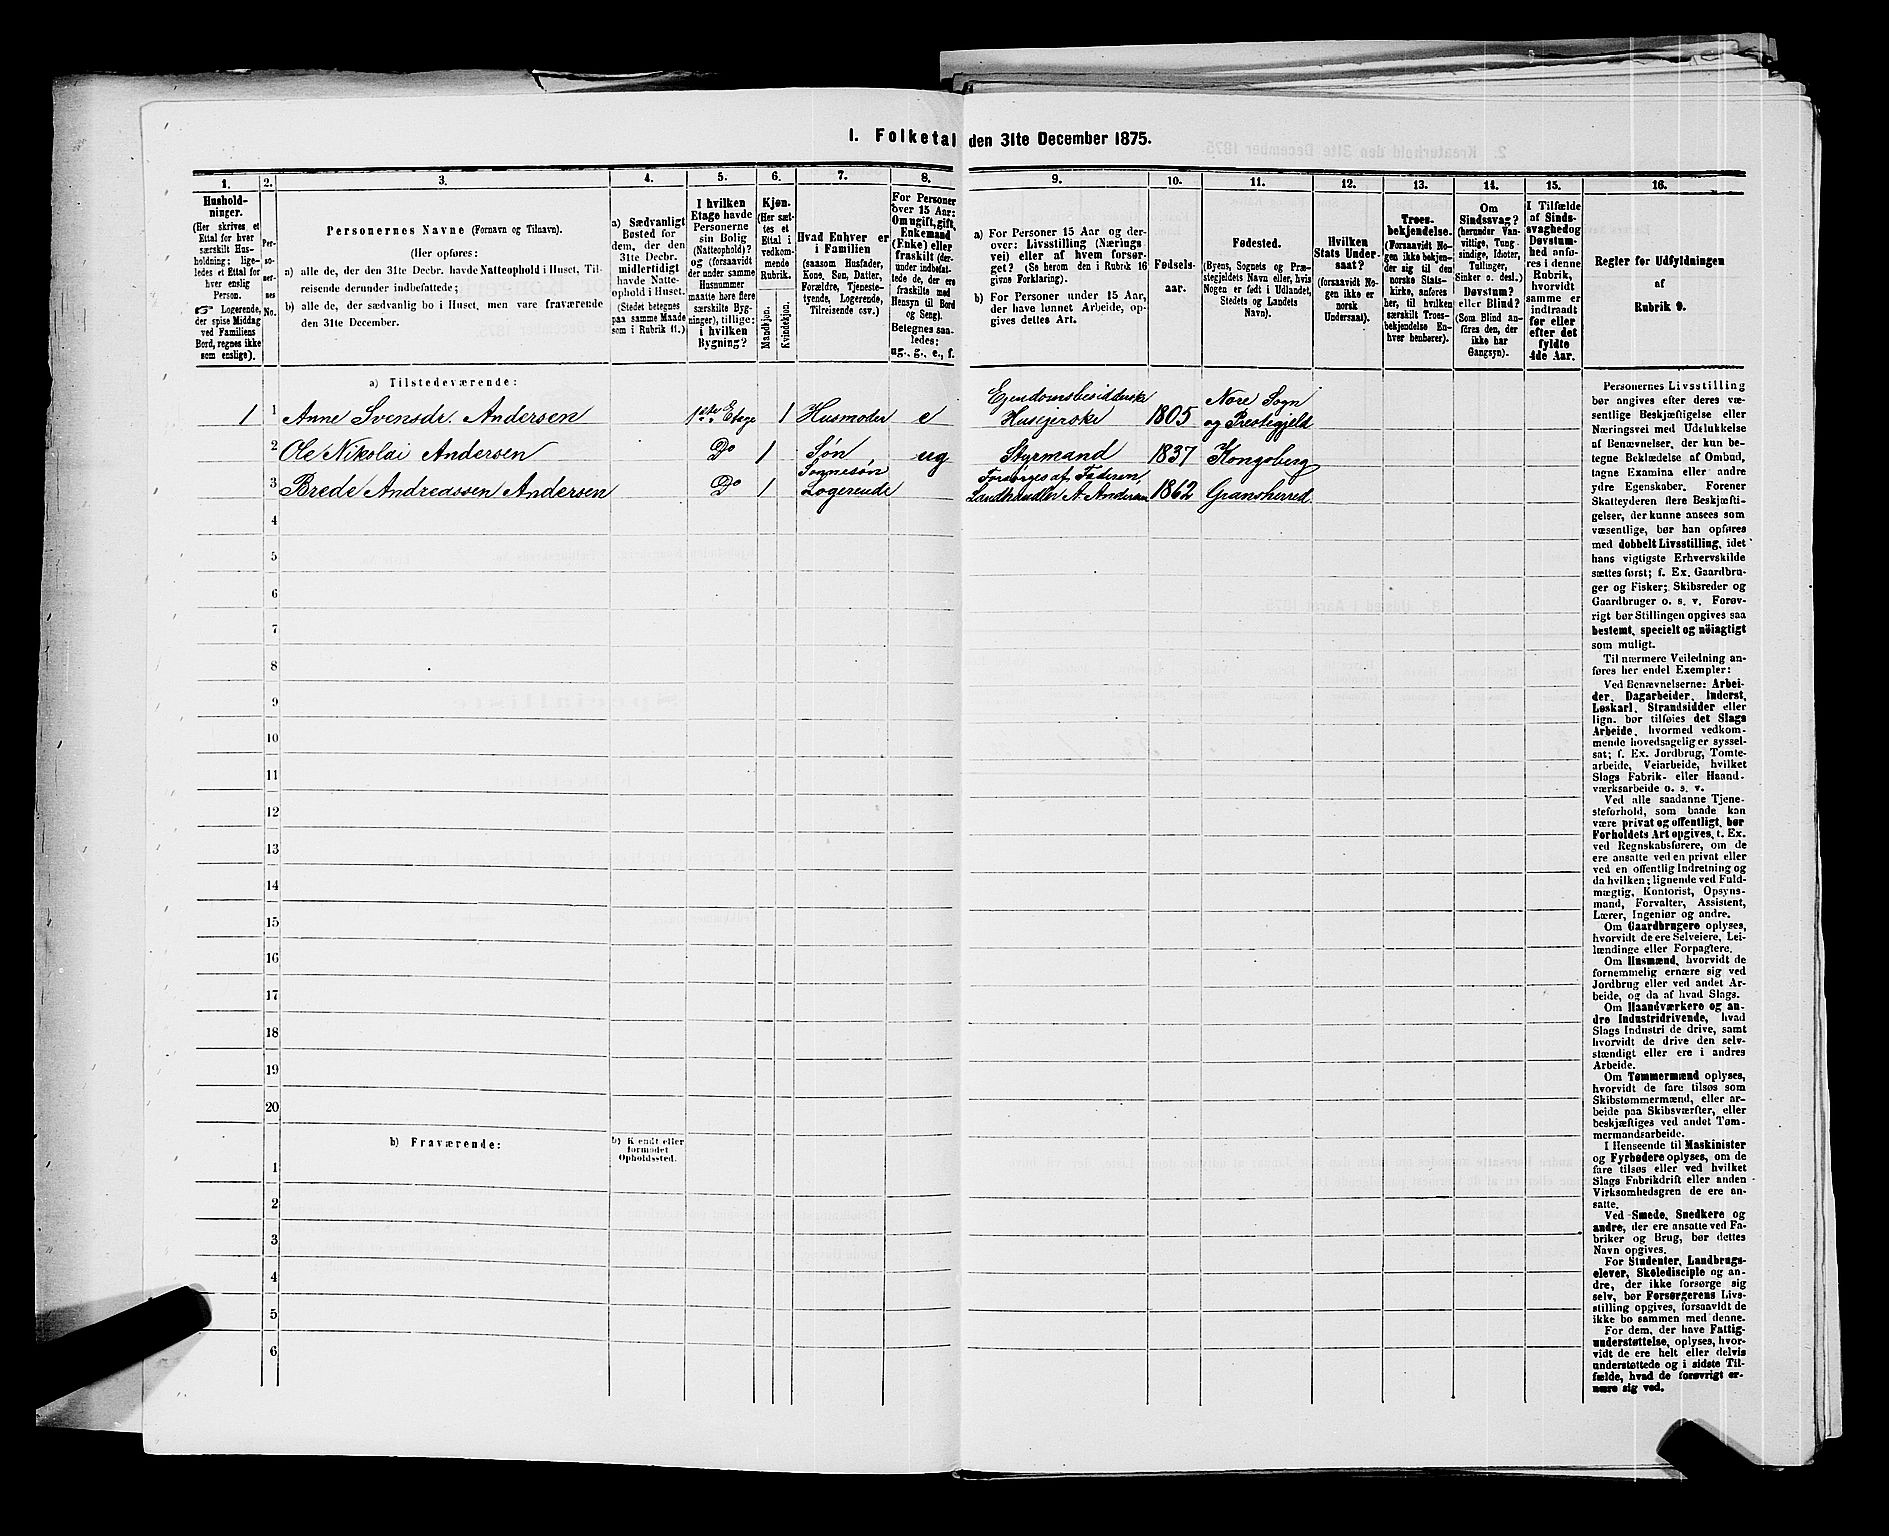 1. Folketal den 31te December 1875.
1.
Hushold-
ninger.
(Her skrives et
Ettal for hver
særskilt Hus-
holdning; lige-
ledes et Ettal for
hver enslig
Person.
Logerende,
der spise Middag
ved Familiens
Bord, regnes ikke
som enslige).
2.
Per-
so-
ner-
nes
No.
3.
Personernes Navne (Fornavn og Tilnavn).
(Her opføres:
a) alle de, der den 31te Decbr. havde Natteophold i Huset, Til-
reisende derunder indbefattede;
b) alle de, der sædvanlig bo i Huset, men vare fraværende
den 31te December.
4.
a) Sædvanligt
Bosted for
dem, der den
31te Decbr.
midlertidigt
havde Natte-
ophold i Huset.
(Stedet betegnes
paa samme Maade
som i Rubrik 11.)
5.
I hvilken
Etage havde
Personerne
sin Bolig
(Natteophold)?
og (forsaavidt
der under samme
Husnummer
maatte høre flere
særskilte Byg-
ninger), tillige:
i hvilken
Bygning?
6.
Kjøn.
(Her sæt-
tes et
Ettal i
vedkom-
mende
Rubrik.
Mandkjøn.
Kvindekjøn.
7.
Hvad Enhver er
i Familien
(saasom Husfader,
Kone, Søn, Datter,
Forældre, Tjeneste-
tyende, Logerende,
Tilreisende osv.)
8.
For Personer
over 15 Aar:
Om ugift, gift,
Enkemand
(Enke) eller
fraskilt (der-
under indbefat-
tede de, der ere
fraskilte med
Hensyn til Bord
og Seng).
Betegnes saa-
ledes:
ug., g., e., f.
9.
a) For Personer 15 Aar og der-
over: Livsstilling (Nærings
vei) eller af hvem forsør-
get? (Se herom den i Rubrik 16
givne Forklaring).
b) For Personer under 15 Aar,
der have lønnet Arbeide, op-
gives dettes Art.
10.
Fødsels-
aar.
11.
Fødested.
(Byens, Sognets og Præ-
stegjeldets Navn eller, hvis
Nogen er født i Udlandet,
Stedets og Landets
Navn).
12.
Hvilken
Stats Under-
saat?
(forsaavidt No-
gen ikke er
norsk
Undersaat).
13.
Troes-
bekjendelse.
(Forsaavidt No-
gen ikke bekjen-
der sig til den
norske Stats-
kirke, anføres
her, til hvilken
særskilt Troes-
bekjendelse En-
hver henhører).
14.
Om
Sindssvag?
(herunder Van-
vittige, Tung-
sindige, Idioter,
Tullinger,
Sinker o. desl.)
Døvstum?
eller Blind?
(Som Blind an-
føres den, der
ikke har
Gangsyn).
15.
I Tilfælde
af Sinds-
svaghed og
Døvstum-
hed anfø-
res i denne
Rubrik,
hvorvidt
samme er
indtraadt
før eller
efter det
fyldte
4de Aar.
16.
Regler for Udfyldningen
af
Rubrik 9.
a) Tilstedeværende:
1 1 Anne Svensdr. Andersen 1ste Etage 1 Husmoder e Eiendomsbesidderske Husejerske 1805 Nore Sogn og Prestegjeld
2 Ole Nikolai Andersen Do 1 Søn ug Styrmand 1837 Kongsberg
3 Brede Andreassen Andersen Do 1 Sognesøn Logerende Forsørges af Faderen, Landhandler A. Andersen 1862 Gransherred
4
5
6
7
8
9
10
11
12
13
14
15
16
17
18
19
20
b) Fraværende:
b) Kjendt eller
formodet
Opholdssted.
1
2
3
4
5
6
Personernes Livsstilling
bør angives efter deres væ-
sentlige Beskjæftigelse eller
Næringsvei med Udelukkelse
af Benævnelser, der kun be-
tegne Beklædelse af Ombud,
tagne Examina eller andre
ydre Egenskaber. Forener
Skatteyderen flere Beskjæfti-
gelser, der kunne ansees som
væsentlige, bør han opføres
med dobbelt Livsstilling, idet
hans vigtigste Erhvervskilde
sættes først; f. Ex. Gaardbru-
ger og Fisker; Skibsreder og
Gaardbruger o. s. v. Forøv-
rigt bør Stillingen opgives saa
bestemt, specielt og nøiagtigt
som muligt.
Til nærmere Veiledning an-
føres her endel Exempler:
Ved Benævnelserne: Arbei-
der, Dagarbeider, Inderst,
Løskarl, Strandsidder eller
lign. bør tilføies det Slags
Arbeide, hvormed vedkom-
mende hovedsagelig er syssel-
sat; f. Ex. Jordbrug, Tomte-
arbeide, Veiarbeide, hvilket
Slags Fabrik- eller Haand-
værksarbeide o. s. v.
Ved alle saadanne Tjene-
steforhold, som baade kan
være privat og offentligt, bør
Forholdets Art opgives, t. Ex.
ved Regnskabsførere, om de
ere ansatte ved en privat eller
ved en offentlig Indretning og
da hvilken; lignende ved Fuld-
mægtig, Kontorist, Opsyns-
mand, Forvalter, Assistent,
Lærer, Ingeniør og andre.
Om Gaardbrugere oplyses,
hvorvidt de ere Selveiere, Lei-
lændinge eller Forpagtere.
Om Husmænd, hvorvidt de
fornemmelig ernære sig ved
Jordbrug eller ved andet Ar-
beide, og da af hvad Slags.
Om Haandværkere og an-
dre Industridrivende, hvad
Slags Industri de drive, samt
hvorvidt de drive den selv-
stændigt eller ere i andres
Arbeide.
Om Tømmermænd oplyses,
hvorvidt de fare tilsøs som
Skibstømmermænd, eller ar-
beide paa Skibsværfter, eller
beskjæftiges ved andet Tøm-
mermandsarbeide.
I Henseende til Maskinister
og Fyrbødere oplyses, om de
fare tilsøs eller ved hvilket
Slags Fabrikdrift eller anden
Virksomhedsgren de ere an-
satte.
Ved Smede, Snedkere og
andre, der ere ansatte ved Fa-
briker og Brug, bør dettes
Navn opgives.
For Studenter, Landbrugs-
elever, Skoledisciple og an-
dre, der ikke forsørge sig
selv, bør Forsørgerens Livs-
stilling opgives, forsaavidt de
ikke bo sammen med denne.
For dem, der have Fattig-
understøttelse, oplyses, hvor-
vidt de ere helt eller delvis
understøttede og i sidste Til-
fælde, hvad de forøvrigt er-
nære sig ved.